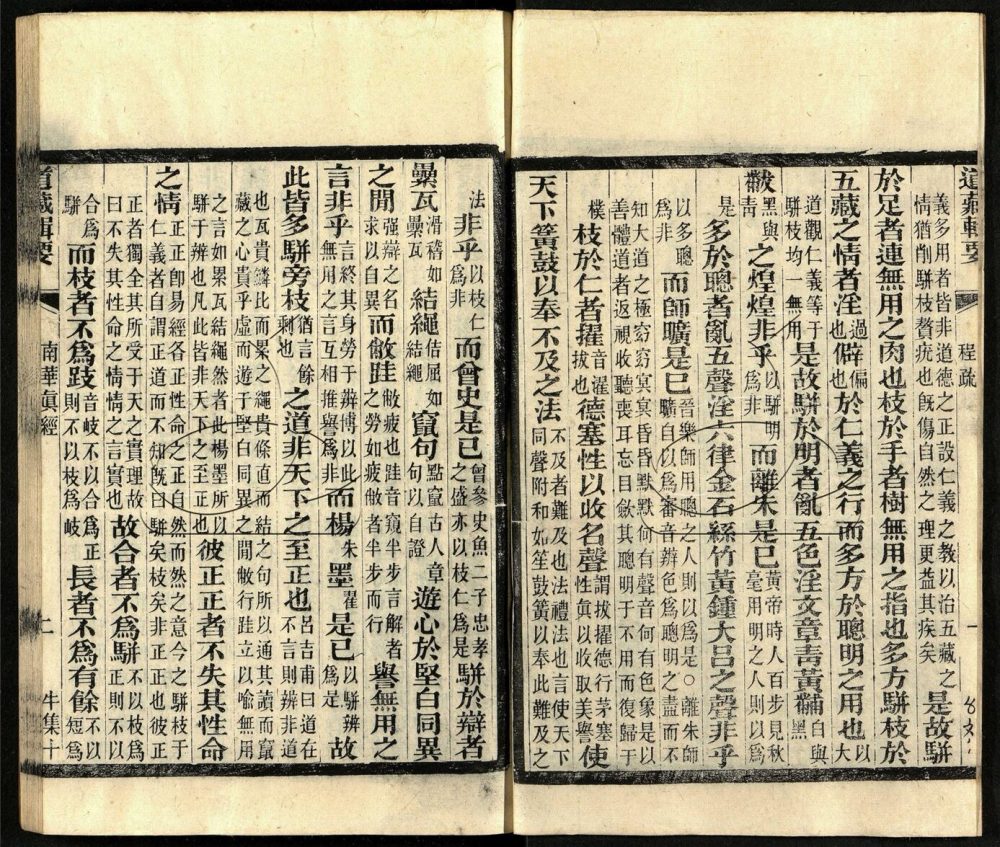 道藏輯要 程疏 一
義多用者皆非道德之正設仁義之教以治五藏之情猶削駢枝贅疣也旣傷自然之理更益其疾矣 是故駢
於足者連無用之肉也枝於手者樹無用之指也多方駢枝於
五藏之情者淫過也僻偏也於仁義之行而多方於聰明之用也以大
道觀仁義等于駢枝均一無用是故駢於明者亂五色淫文章靑黃黼白與黑
黻黑與 之煌煌非乎以駢明爲非而離朱是已黃帝時人百步見秋毫用明之人則以爲
是 多於聰者亂五聲淫六律金石絲竹黃鍾大呂之聲非乎
以多聰爲非 而師曠是已晉樂師用聰之人則以爲是○離朱師曠自以爲審音辨色爲聰明之盡而不
知大道之極窈窈冥冥昏昏默默何有聲音何有色象是以善體道者返視收聽喪耳忘目歛其聰明于不用而復歸于
樸 枝於仁者擢音濯拔也德塞性以收名聲謂拔擢德行茅塞性眞以收取美譽使
天下簧鼓以奉不及之法不及者難及也法禮法也言使天下同聲附和如笙鼓簧以奉此難及之
法 非乎以枝仁爲非而曾史是已曾參史魚二子忠孝之盛亦以枝仁爲是駢於辯者
纍瓦滑稽如纍瓦結繩佶屈如結繩竄句點竄古人章句以自證遊心於堅白同異
之閒強辯之名求以自異而敝跬敝疲也跬音窺半步言解者之勞如疲敝者半步而行譽無用之
言非乎言終其身勞于辯博以此無用之言互相推譽爲非而楊朱墨翟是已以駢辨爲是故
此皆多駢旁枝猶言餘剩也之道非天下之至正也呂吉甫曰道在不言則辨非道
也瓦貴鱗比而累之繩貴條直而結之句所以通其讀而竄藏之心貴乎虛而遊于堅白同異之閒敝行跬立以喩無用
之言如累瓦結繩然者此楊墨所以駢于辨也凡此皆非天下之至正也彼正正者不失其性命
之情正正卽易經各正性命之正自然而然之意今之駢枝于仁義者自謂正道而不知旣曰駢矣枝矣非正正也彼正
正者獨全其所受于天之實理故曰不失其性命之情情之言實也故合者不爲駢不以枝爲正則不以
合爲駢 而枝者不爲跂音岐不以合爲正則不以枝爲岐長者不爲有餘不以短爲
道藏輯要 南華眞經 二 牛集十